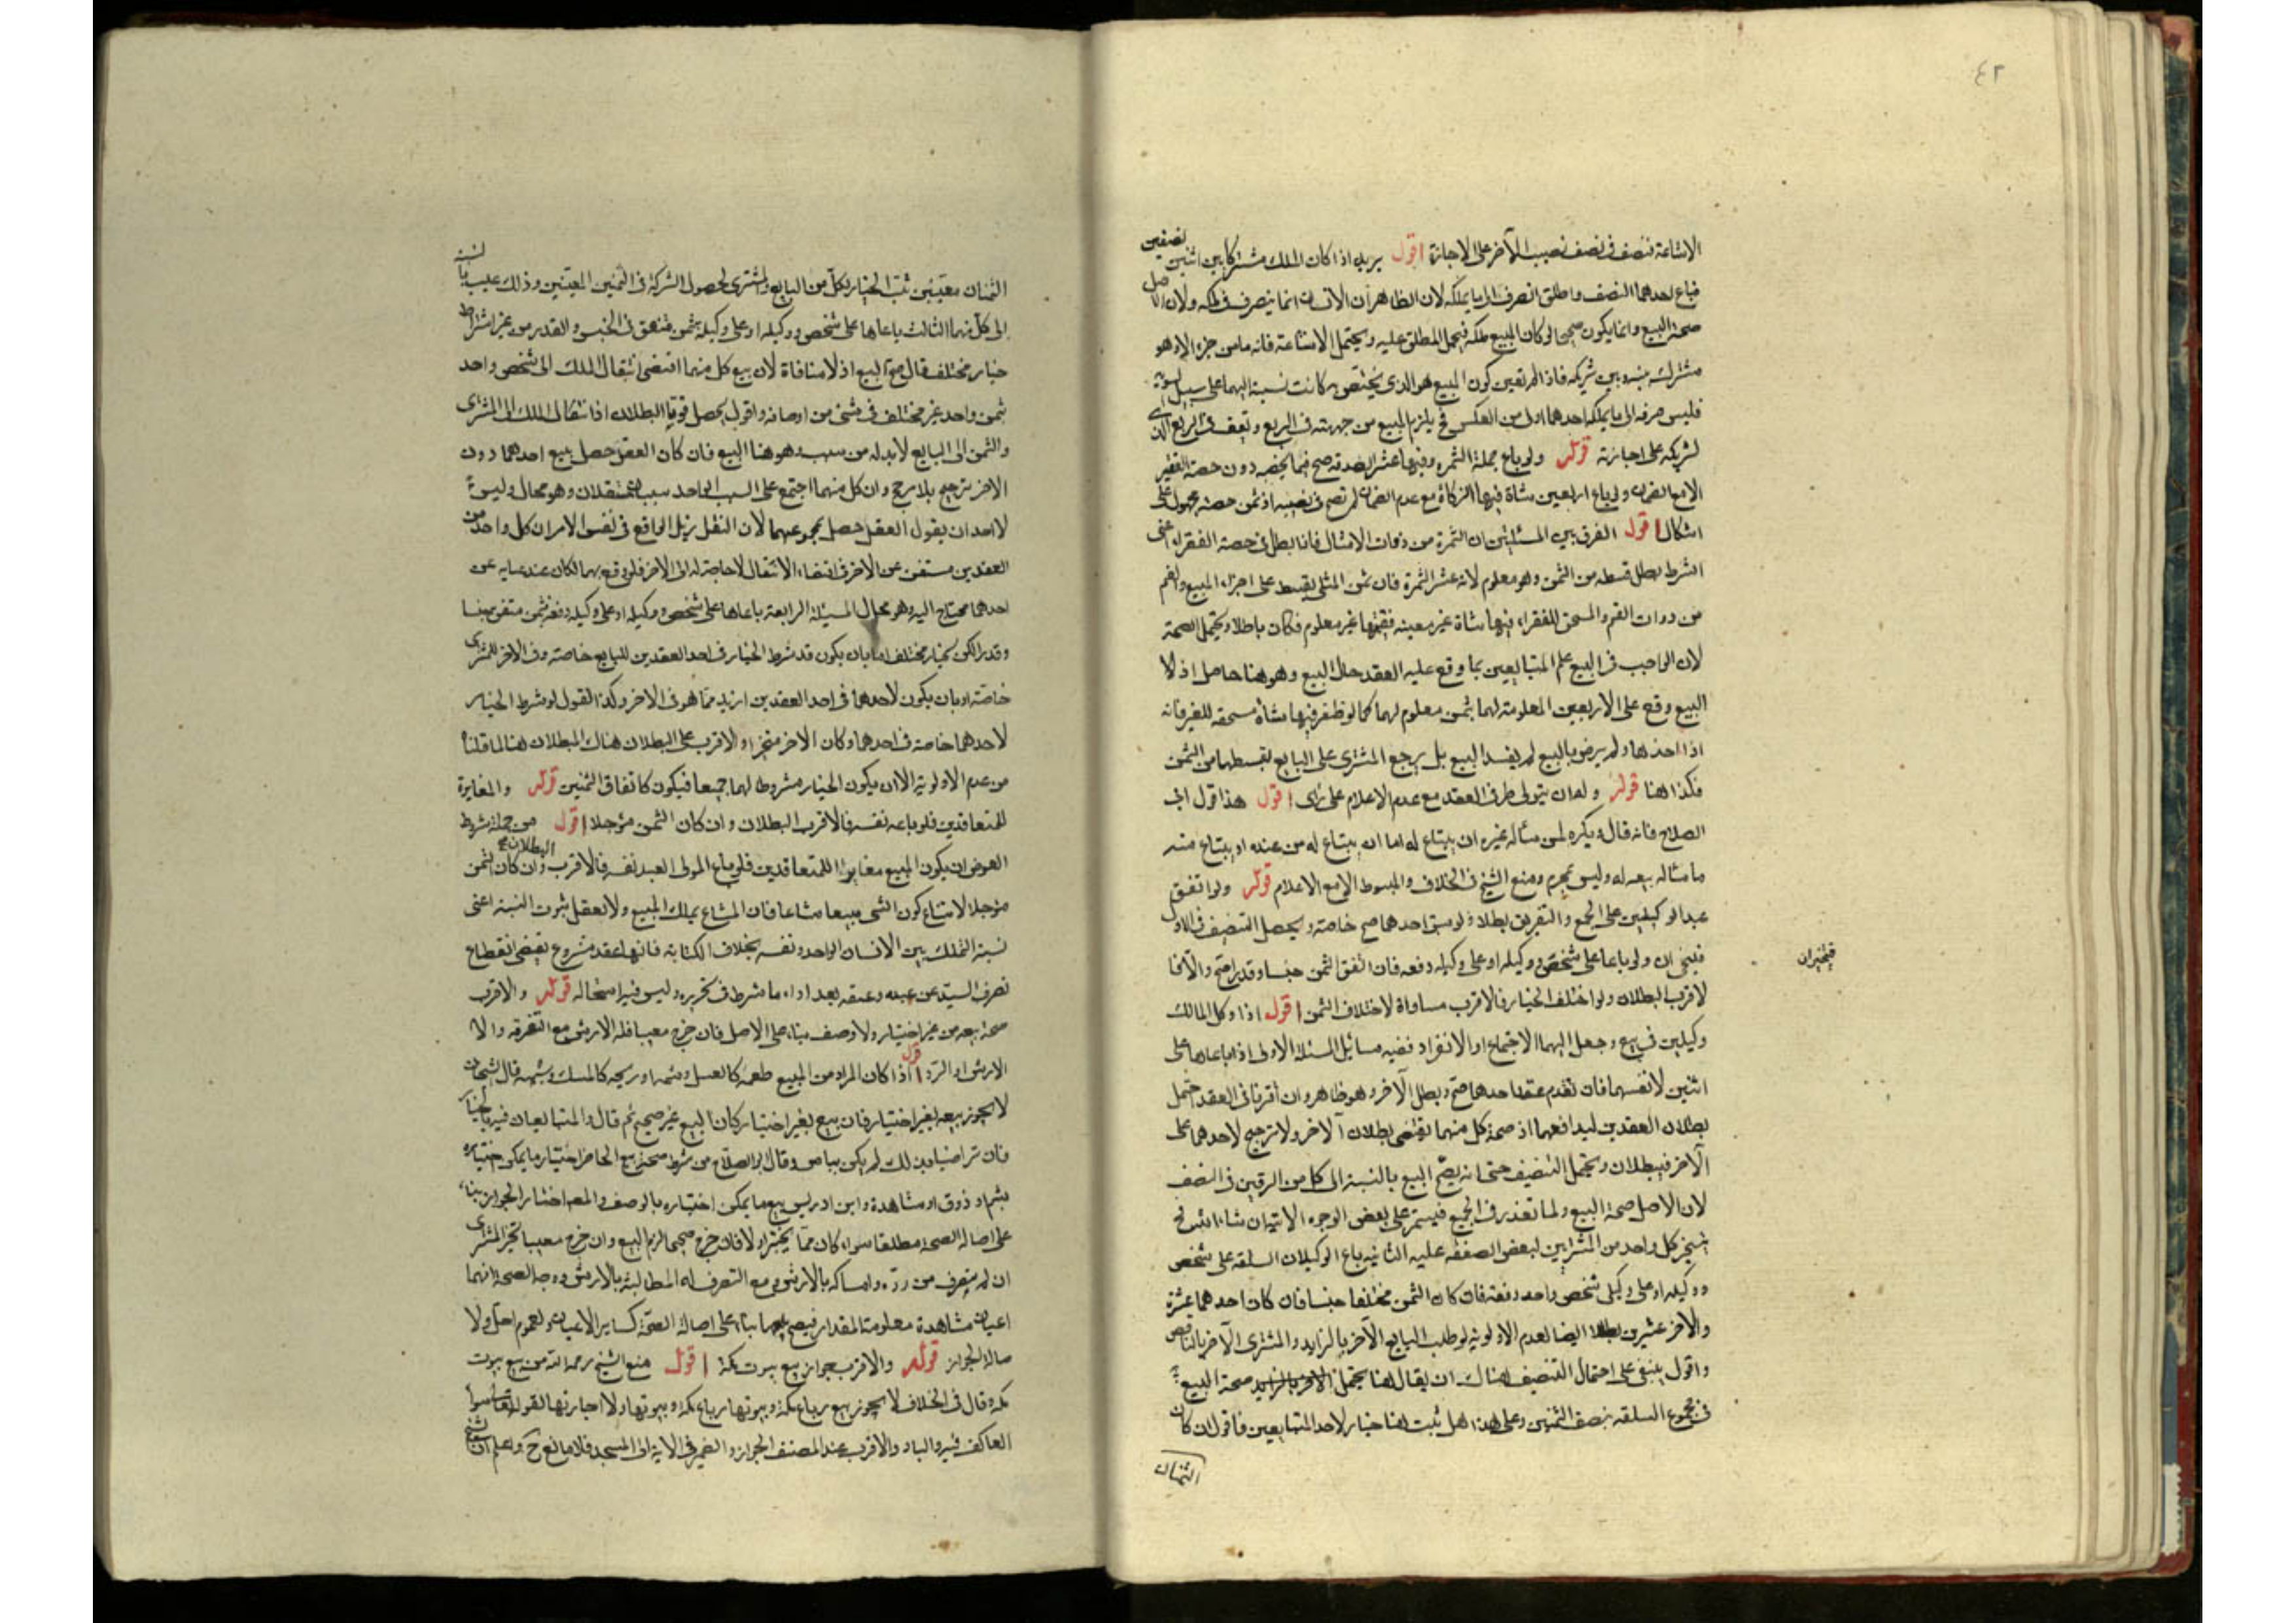 ٤٢
الاشاعة فنصف فى نصف نصيب الآخر على الاجازة اقول يريد اذا كان الملك مشتركا بين اثنين نصفين
فباع احدهما النصف واطلق انصرف الى ما يملكه لان الظاهر ان الانسان انما يتصرف فى ملكه ولان الاصل
صحة البيع وانما يكون صحيحا لو كان المبيع ملكه فيحمل المطلق عليه ويحتمل الاشاعة فانه ما من جزء الا وهو
مشترك بينه وبين شريكه فاذا لم تعين كون المبيع هو الذى يختص به كانت نسبة اليهما على سبيل السوية
فليس صرفه الى ما يملكه احدهما اولى من العكس فح يلزم المبيع من جهته فى الربع ويقف فى الربع الذى
لشريكه على اجازته قوله ولو باع جملة الثمرة وفيها عشر الصدقة صح فيما يخصه دون حصة الفقير
الا مع الضمان ولو باع اربعين شاة فيها الزكاة مع عدم الضمان لم تصح فى نصيبه اذ ثمن حصته مجهول على
اشكال اقول الفرق بين المسئلتين ان الثمرة من ذوات الامثال فاذا بطل فى حصة الفقراء اعنى
الشرط بطل قسطه من الثمن وهو معلوم لانه عشر الثمرة فان ثمن المثلى يقسط على اجزاء المبيع والغنم
من ذوات القيم والمستحق للفقراء فيها شاة غير معينه فقيمتها غير معلوم فكان باطلا ويحتمل الصحة
لان الواجب فى البيع علم المتبايعين بما وقع عليه العقد حال البيع وهو هنا حاصل اذ لا
البيع وقع على الاربعين المعلومة لهما بثمن معلوم لهما كما لو ظفر فيها بشاة مستحقه للغير فانه
اذا اخذها ولم يرض بالبيع لم يفسد البيع بل يرجع المشترى على البايع بقسطها من الثمن
فكذا هنا قوله وله ان يتولى طرفى العقد مع عدم الاعلام على راى اقول هذا قول ابى
الصلاح فانه قال ويكره لمن سأله غيره ان يبتاع له اما ان يبتاع له من عنده او يبتاع منه
ما سأله بيعه له وليس بمحرم ومنع الشيخ فى الخلاف والمبسوط الا مع الاعلام قوله ولو اتفق
عقد الوكيلين على الجمع والتفريق بطلا ولو سبق احدهما صح خاصة ويحصل التنصيف فى الاول
فيتخيران ولو باعا على شخص ووكيله او على وكيله دفعه فان اتفق الثمن جنسا وقدرا صح والا فا
لاقرب البطلان ولو اختلف الخيار فالاقرب مساواة لاختلاف الثمن اقول اذا وكل المالك
وكيلين فى بيع وجعل اليهما الاجتماع او الانفراد ففيه مسائل المسئلة الاولى اذا باعاها على
اثنين لانفسهما فان تقدم عقد احدهما صح وبطل الآخر وهو ظاهر وان اقترنا فى العقد احتمل
بطلان العقدين لتدافعهما اذ صحة كل منهما تقتضى بطلان الآخر ولا ترجيح لاحدهما على
الآخر فيبطلان ويحتمل التنصيف حتى انه يصح البيع بالنسبة الى كل من الرقين فى النصف
لان الاصل صحة البيع ولما تعذر فى الجميع فيستمر على بعض الوجوه
يتخير كل واحد من المشترين لبعض الصفقة عليه الثانية باع الوكيلان السلعة على شخص
ووكيله او على وكيلى شخص واحد دفعة فان كان الثمن مختلفا جنسا فان كان احدهما عشرة
والآخر عشرين بطلا ايضا لعدم الاولوية لو طلب البايع الآخر بالزايد والمشترى الآخر بالناقص
واقول ينبغى على احتمال التنصيف هناك ان يقال هنا يحتمل صحة البيع
فى مجموع السلعة بنصف الثمنين وعلى هذا هل ثبت هنا خيار لاحد المتبايعين فاقول ان كان
الثمنان
فيتخيران
الثمنان معيبين ثبت الخيار لكل من البايع والمشترى لحصول الشركة فى الثمنين المعينين وذلك عيب بالنسبة
الى كل منهما الثالث باعاها على شخص ووكيله او على وكيله بثمن متفق فى الجنس والقدر من غير اشتراط
خيار مختلف قال صح البيع اذ لا منافاة لان بيع كل منهما اقتضى انتقال الملك الى شخص واحد
بثمن واحد غير مختلف فى شئ من اوصافه واقول يحصل قويا البطلان اذ انتقال الملك الى المشترى
والثمن الى البايع لا بد له من سبب وهو هنا البيع فان كان العقد حصل ببيع احدهما دون
الاخر ترجيح بلا مرجح وان كل منهما اجتمع على السبب الواحد سببان مستقلان وهو محال وليس
لاحد ان يقول العقد حصل بمجموعهما لان النقل يزيل الواقع فى نفس الامر ان كل واحد من
العقدين مستغن عن الآخر فى اقتضاء الانتقال لا حاجة له الى الاخر فلو وقع بهما لكان عند غنايه عن
احدهما محتاج اليه وهو محال المسئلة الرابعة باعاها على شخص ووكيله او على وكيله دفعة بثمن متفق جنسا
وقدرا لكن بخيار مختلف اما بان يكون قد شرط الخيار فى احد العقدين للبايع خاصة وفى الاخر للمشترى
خاصة او بان يكون لاحدهما فى احد العقدين ازيد مما هو فى الاخر وكذا القول لو شرط الخيار
لاحدهما خاصة فى احدهما وكان الآخر منجزا والاقرب على البطلان هناك البطلان هنا لما قلناه
من عدم الاولوية الا ان يكون الخيار مشروطا لهما جميعا فيكون كاتفاق الثمنين قوله والمغايرة
للمتعاقدين فلو باعه نفسه فالاقرب البطلان وان كان الثمن مؤجلا اقول من جملة شروط
العوض ان يكون المبيع مغايرا للمتعاقدين فلو باع المولى العبد نفسه فالاقرب البطلان وان كان الثمن
مؤجلا لامتناع كون الشئ مبيعا مشاعا فان المشاع يملك المبيع ولا يعقل ثبوت النسبة اعنى
نسبة التملك بين الانسان الواحد ونفسه بخلاف الكتابة فانها عقد مشروع يقتضى انقطاع
تصرف السيد عن عبده وعتقه بعد اداء ما شرط فى تحريره وليس فيه استحالة قوله والاقرب
صحة بيعه من غير اختبار ولا وصف بناء على الاصل فان خرج معيبا فله الارش مع التصرف والا
الارش او الرد اقول اذا كان المراد من المبيع طعمه كالعسل وشمه او ريحه كالمسك وشبهه قال الشيخان
لا يجوز بيعه بغير اختبار فان بيع بغير اختبار كان البيع غير صحيح ثم قال والمتبايعان فيه بالخيار
فان تراضيا بذلك لم يكن به باس وقال ابو الصلاح من شرط صحة بيع الحاضر اختبار ما يمكن اختباره
بشم او ذوق او مشاهدة وابن ادريس بيع ما يمكن اختباره بالوصف والمصـ اختار الجواز بناء
على اصالة الصحة مطلقا سواء كان مما يختبر او لا فان خرج صحيحا لزم البيع وان خرج معيبا تخير المشترى
ان لم يتصرف من رده وامساكه بالارش ومع التصرف له المطالبة بالارش ووجه الصحة انهما
اعيان مشاهدة معلومة المقدار فيصح بيعها بناء على اصالة الصحة كساير الاعيان ولعموم احل ولا
صالة الجواز قوله والاقرب جواز بيع بيوت مكة اقول منع الشيخ رحمه الله من بيع بيوت
مكة وقال فى الخلاف لا يجوز بيع رباع مكة وبيوتها رباع مكة وبيوتها ولا اجارتها لقوله تعالى سواء
العاكف فيه والباد والاقرب عند المصنف الجواز والضمير فى الاية الى المسجد فلا مانع ح واعلم ان الشيخ